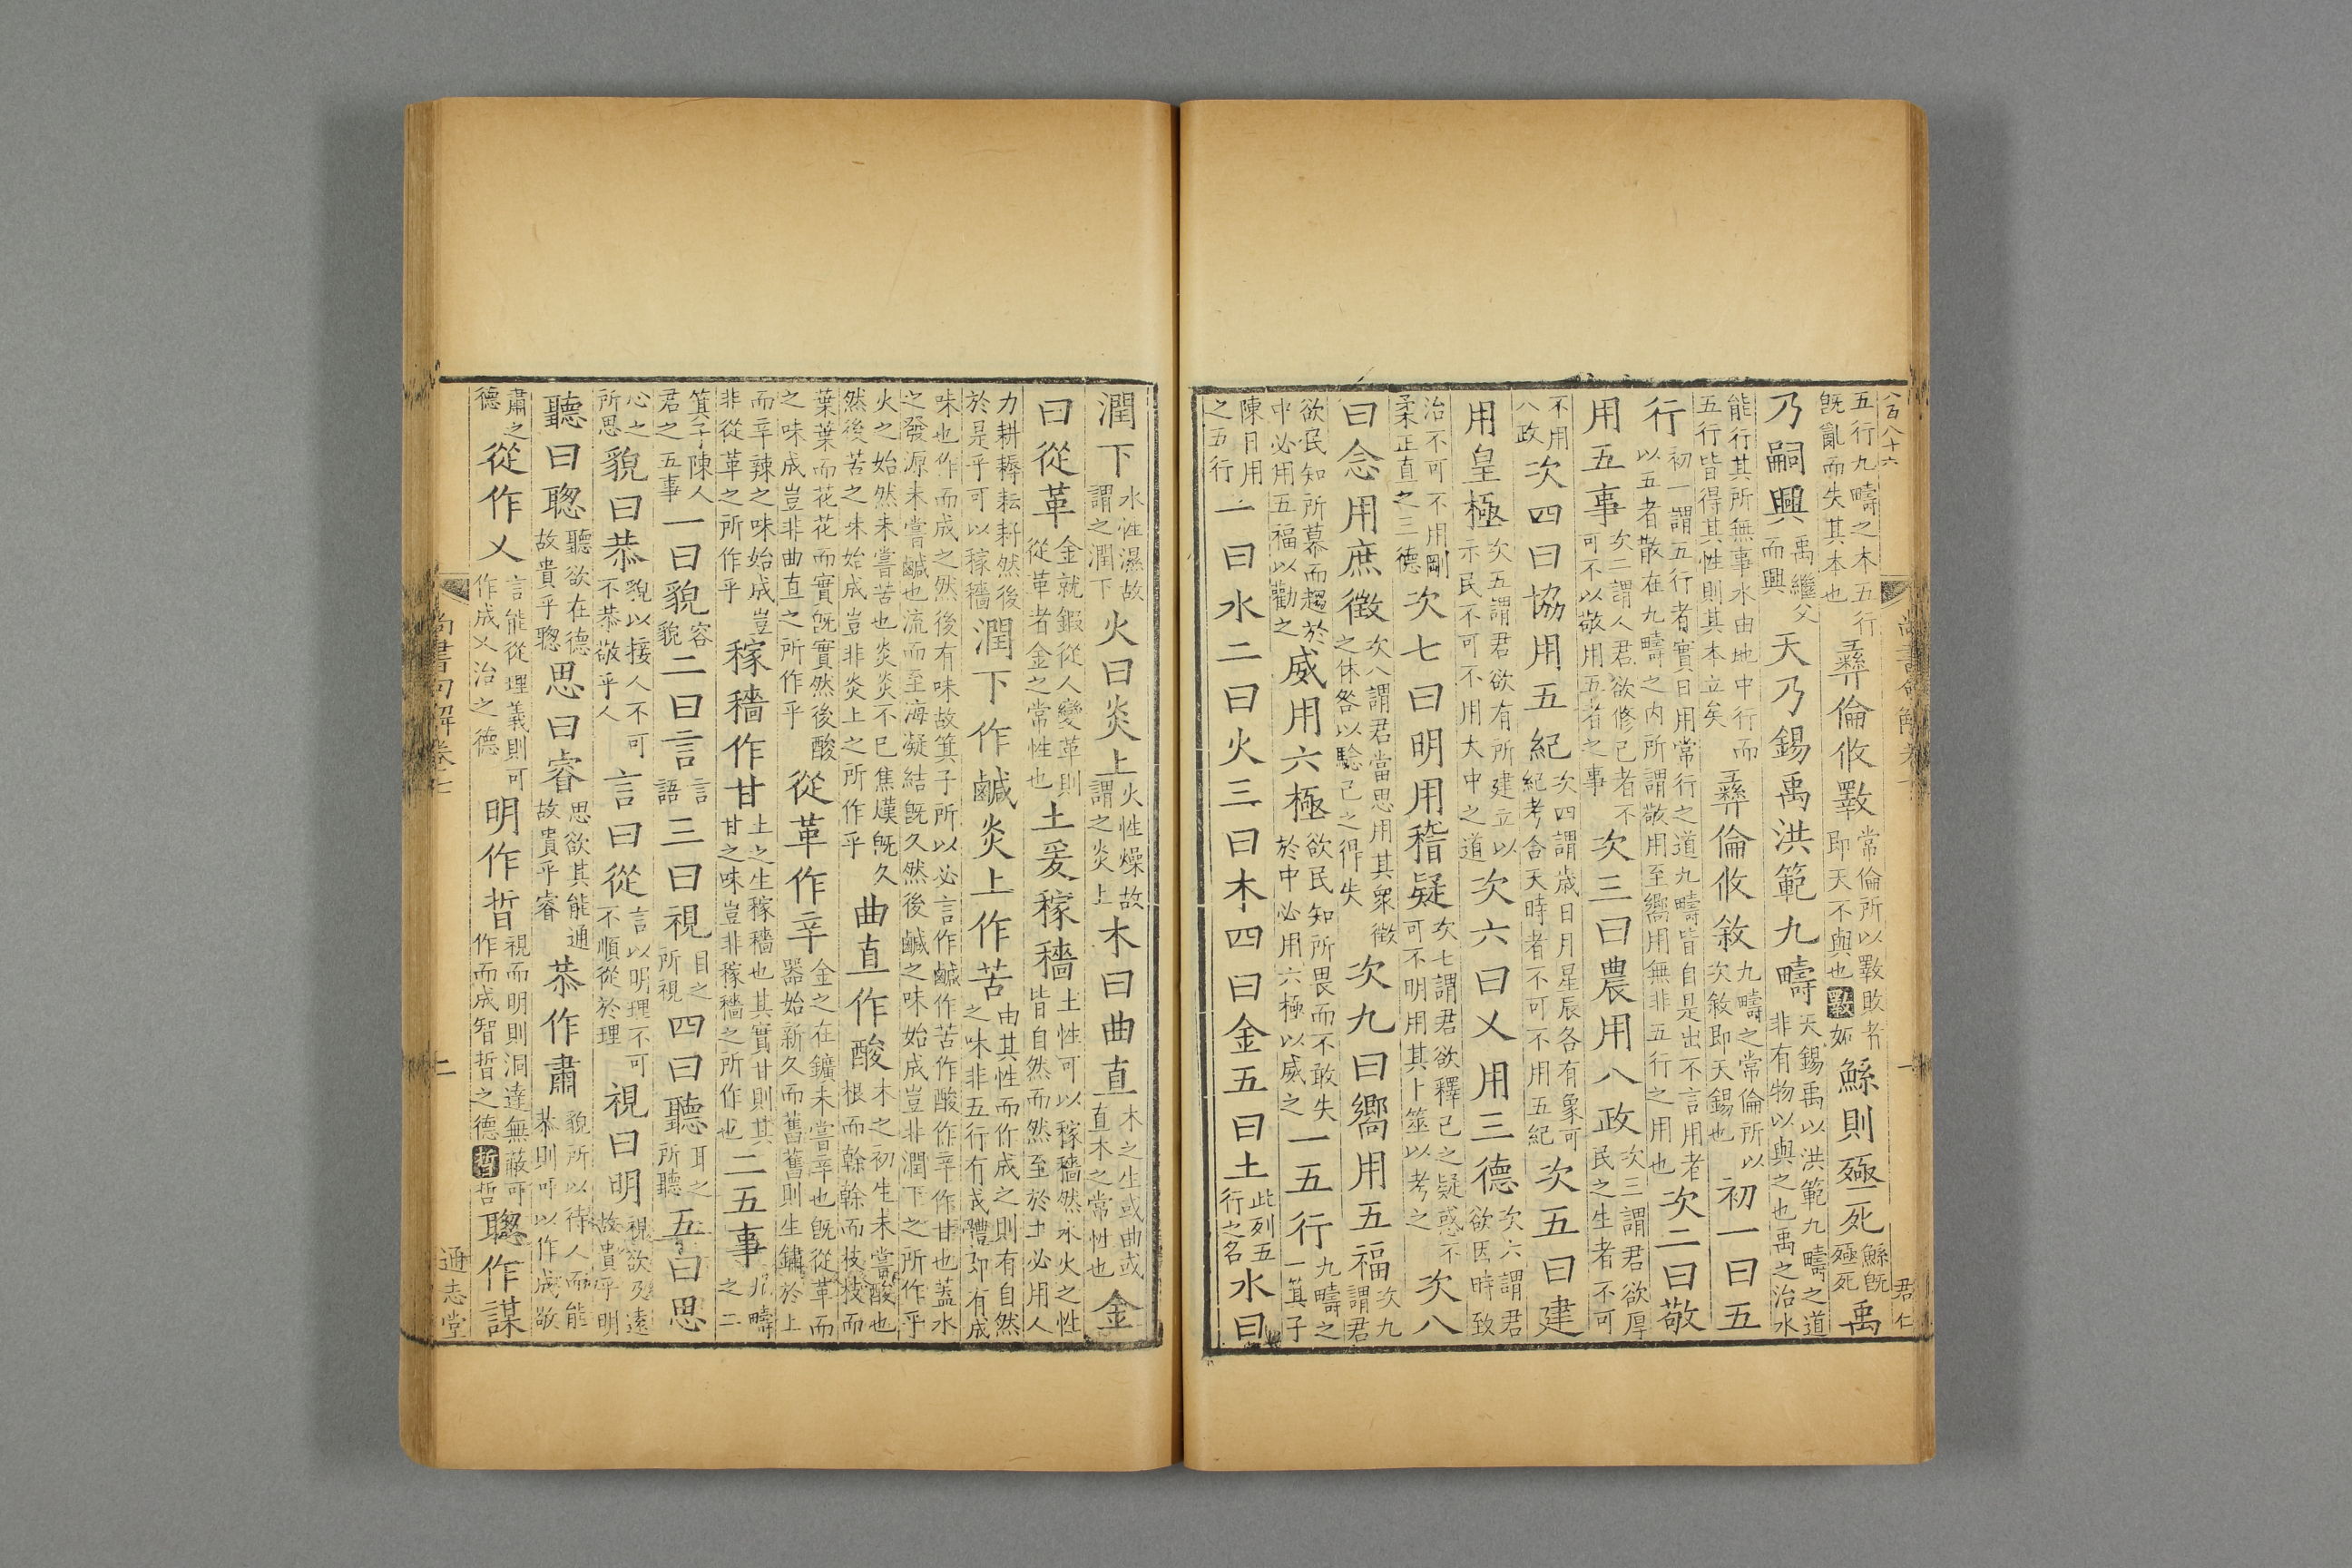 八百八十六
尚書句解卷七 一 君仁
五行九疇之本五行既亂而失其本也彝倫攸斁常倫所以斁敗者即天不與也斁妬鯀則殛死鯀既殛死禹
乃嗣興禹繼父而興天乃錫禹洪範九疇天錫禹以洪範九疇之道非有物以與之也禹之治水
能行其所無事水由地中行而五行皆得其性則其本立矣彝倫攸敘九疇之常倫所以次敘即天錫也初一曰五
行初一謂五行者實日用常行之道九疇皆自是出不言用者以五者散在九疇之内所謂敬用至嚮用無非五行之用也次二曰敬
用五事次二謂人君欲修己者不可不以敬用五者之事次三曰農用八政次三謂君欲厚民之生者不可
不用八政次四曰協用五紀次四謂歲日月星辰各有象可紀考合天時者不可不用五紀次五曰建
用皇極次五謂君欲有所建立以示民不可不用大中之道次六曰乂用三德次六謂君欲因時致
治不可不用剛柔正直之三德次七曰明用稽疑次七謂君欲釋己之疑惑不可不明用其卜筮以考之次八
曰念用庶徵次八謂君當思用其衆徵之休咎以驗己之得失次九曰嚮用五福次九謂君
欲民知所慕而趨於中必用五福以勸之威用六極欲民知所畏而不敢失於中必用六極以威之一五行九疇之一箕子
陳日用之五行一曰水二曰火三曰木四曰金五曰土此列五行之名水曰
潤下水性濕故謂之潤下火曰炎上火性燥故謂之炎上木曰曲直木之生或曲或直木之常性也金
曰從革金就鍛從人變革則從革者金之常性也土爰稼穡土性可以稼穡然水火之性皆自然而然至於土必用人
力耕耨耘耔然後於是乎可以稼穡潤下作鹹炎上作苦由其性而作成之則有自然之味非五行有成體即有成
味也作而成之然後有味故箕子所以必言作鹹作苦作酸作辛作甘也蓋水之發源未嘗鹹也流而至海凝結既久然後鹹之味始成豈非潤下之所作乎
火之始然未嘗苦也炎炎不已焦熯既久然後苦之味始成豈非炎上之所作乎曲直作酸木之初生未嘗酸也根而幹幹而枝枝而
葉葉而花花而實既實然後酸之味成豈非曲直之所作乎從革作辛金之在鑛未嘗辛也既從革而器始新久而舊舊則生鏽於上
而辛辣之味始成豈非從革之所作乎稼穡作甘土之生稼穡也其實甘則其甘之味豈非稼穡之所作也二五事九疇之二
箕子陳人君之五事一曰貌容貌二曰言言語三曰視目之所視四曰聽耳之所聽五曰思
心之所思貌曰恭貌以接人不可不恭敬乎人言曰從言以明理不可不順從於理視曰明視欲及遠故貴乎明
聽曰聰聽欲在德故貴乎聰思曰睿思欲其能通故貴乎睿恭作肅貌所以待人而能恭則可以作成敬
肅之德從作乂言能從理義則可作成乂治之德明作晢視而明則洞達無蔽可作而成智晢之德晢哲聰作謀
尚書句解卷七 二 通志堂